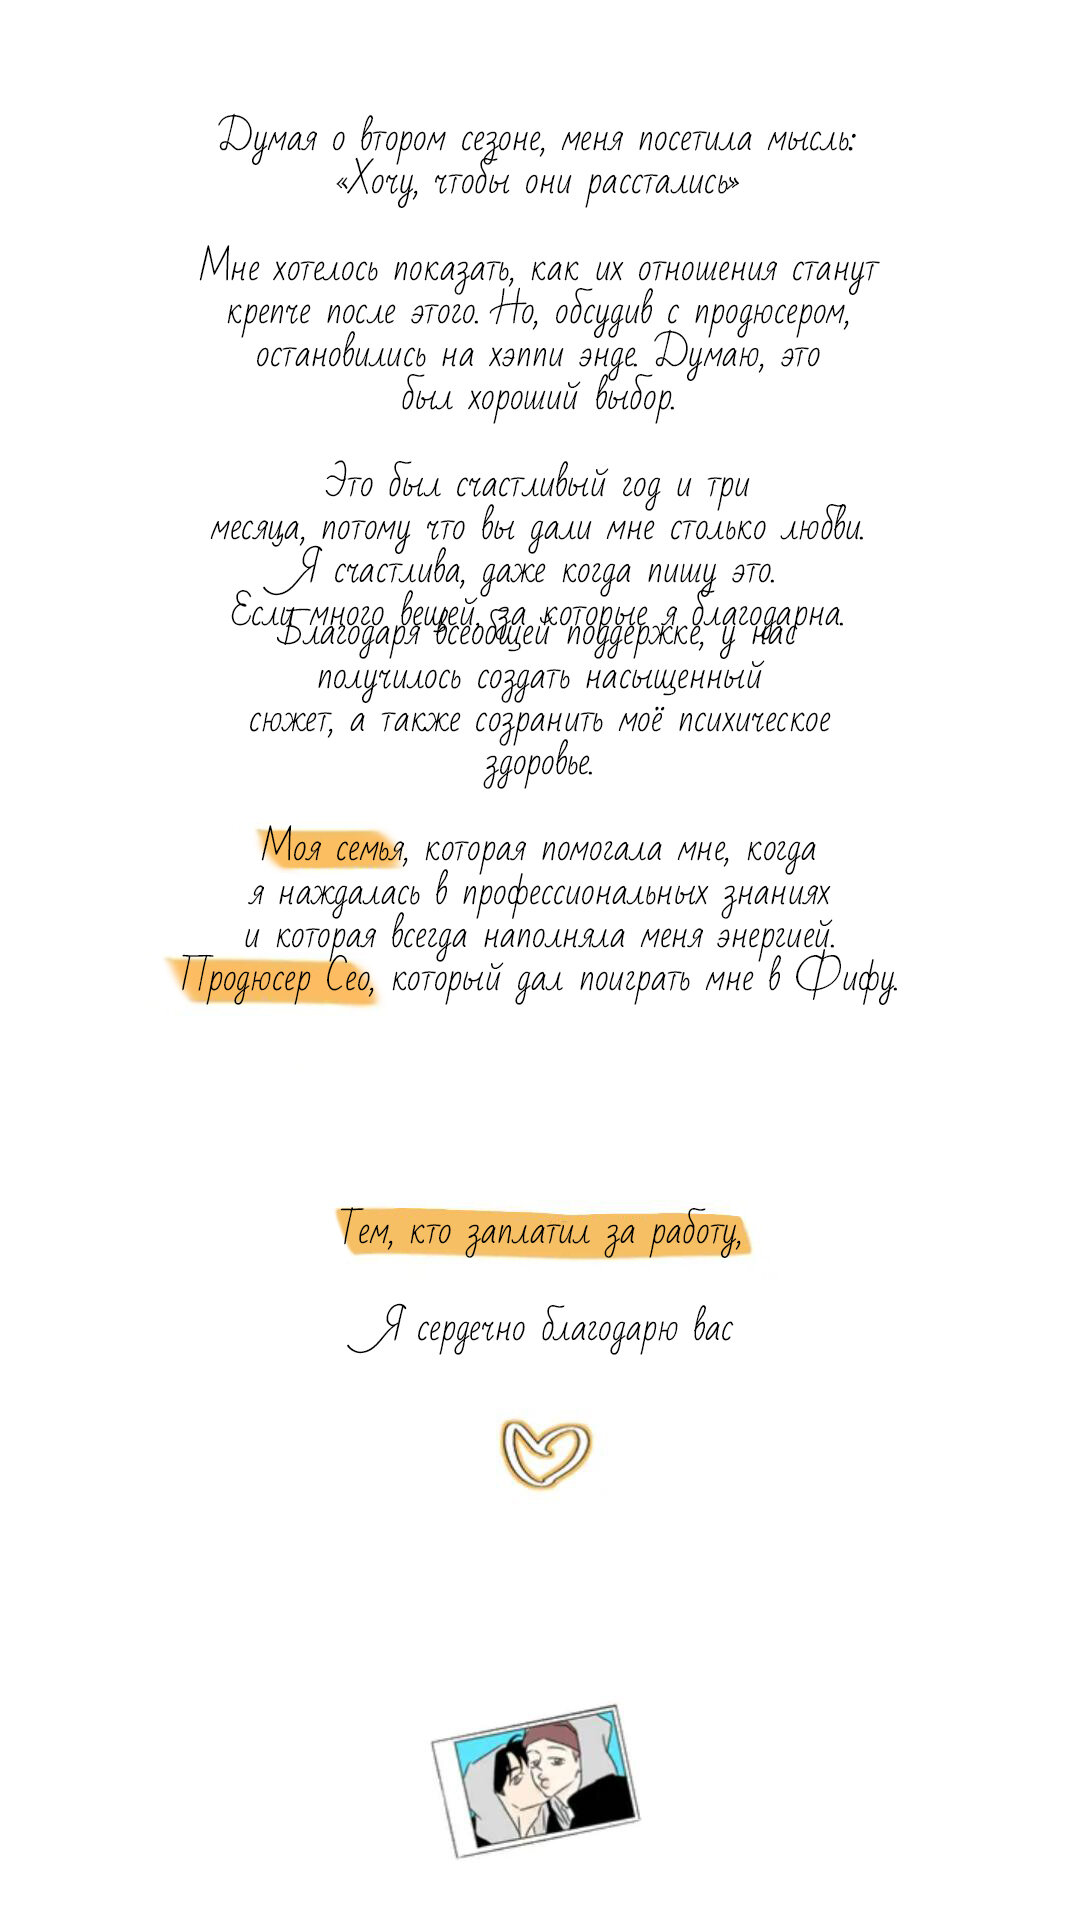 Думая о втором сезоне, меня посетила мысль:
«Хочу, чтобы они расстались»
Мне хотелось показать, как их отношения станут
крепче после этого. Но, обсудив с продюсером,
остановились на хэппи энде. Думаю, это
был хороший выбор.
Это был счастливый год и три
месяца, потому что вы дали мне столько любви.
Я счастлива, даже когда пишу это.
Если много вещей, за которые я благодарна.
Благодаря всеобщей поддержке, у нас
получилось создать насыщенный
сюжет, а также созранить моё психическое
здоровье.
Моя семья, которая помогала мне, когда
я наждалась в профессиональных знаниях
и которая всегда наполняла меня энергией.
Продюсер Сео, который дал поиграть мне в Фифу.
Тем, кто заплатил за работу,
Я сердечно благодарю вас